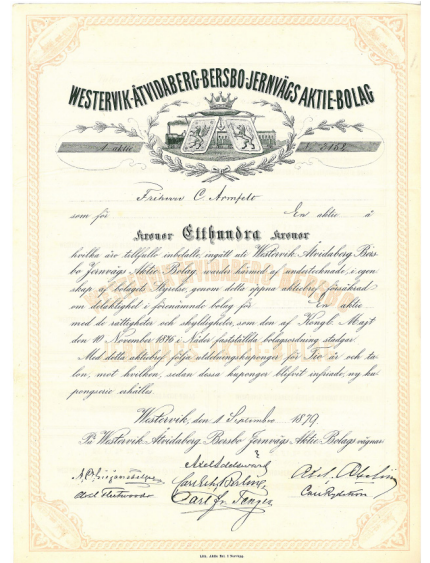 WESTERVIK-ÅTVIDABERG-BERSBO-JERNVÄGS AKTIE-BOLAG
1 aktie
Friherre C. Armfelt
som för En aktie à
Kronor Etthundra Kronor
hvilka äro tillfullo inbetalte, ingått uti Westervik Åtvidaberg Bers-
bo Jernvägs Aktie Bolag varder härmed af undertecknade, i egen-
skap af bolagets Styrelse genom detta öppna aktiebref försäkrad
om delaktighet i förenämnde bolag för En aktie
med de rättigheter och skyldigheter, som den af Kongl. Maj:t
den 10 November 1876 i Nåder fastställda bolagsordning stadgar
Med detta aktiebref följa utdelningskuponger för Tio år och ta-
lon, mot hvilken, sedan dessa kuponger blifvit infriade, ny ku-
pongserie erhålles.
Westervik, den 1 Septembro 1879
På Westervik Åtvidaberg Bersbo Jernvägs Aktie Bolags vägnar
Axel Adelswärd
Carl Rydström